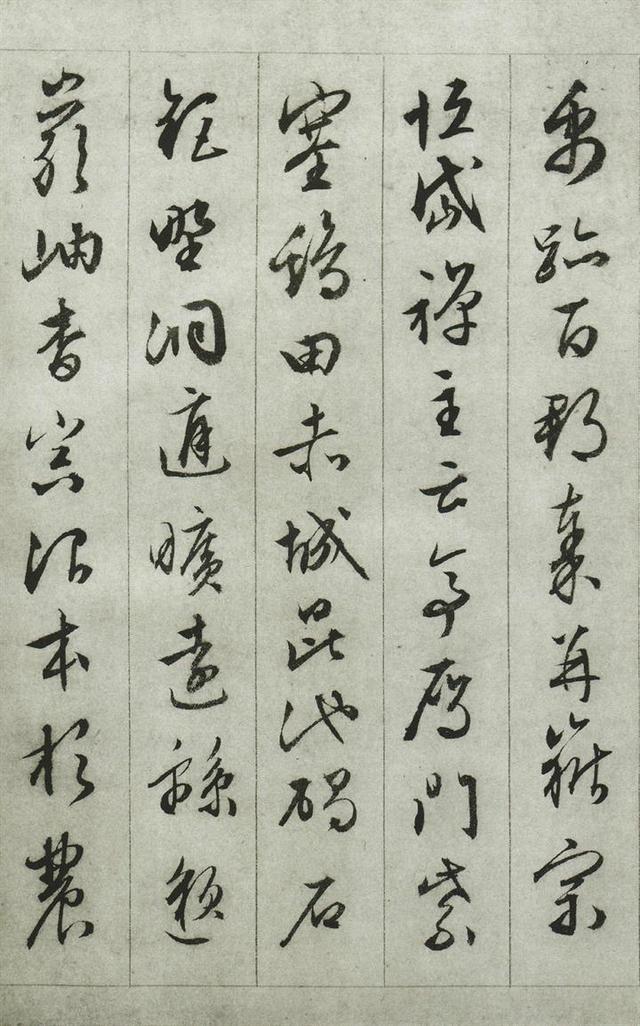 禹跡百郡秦并嶽宗
恒岱禪主云亭雁門紫
塞雞田赤城昆池碣石
鉅野洞庭曠遠緜邈
巖岫杳冥治本於農